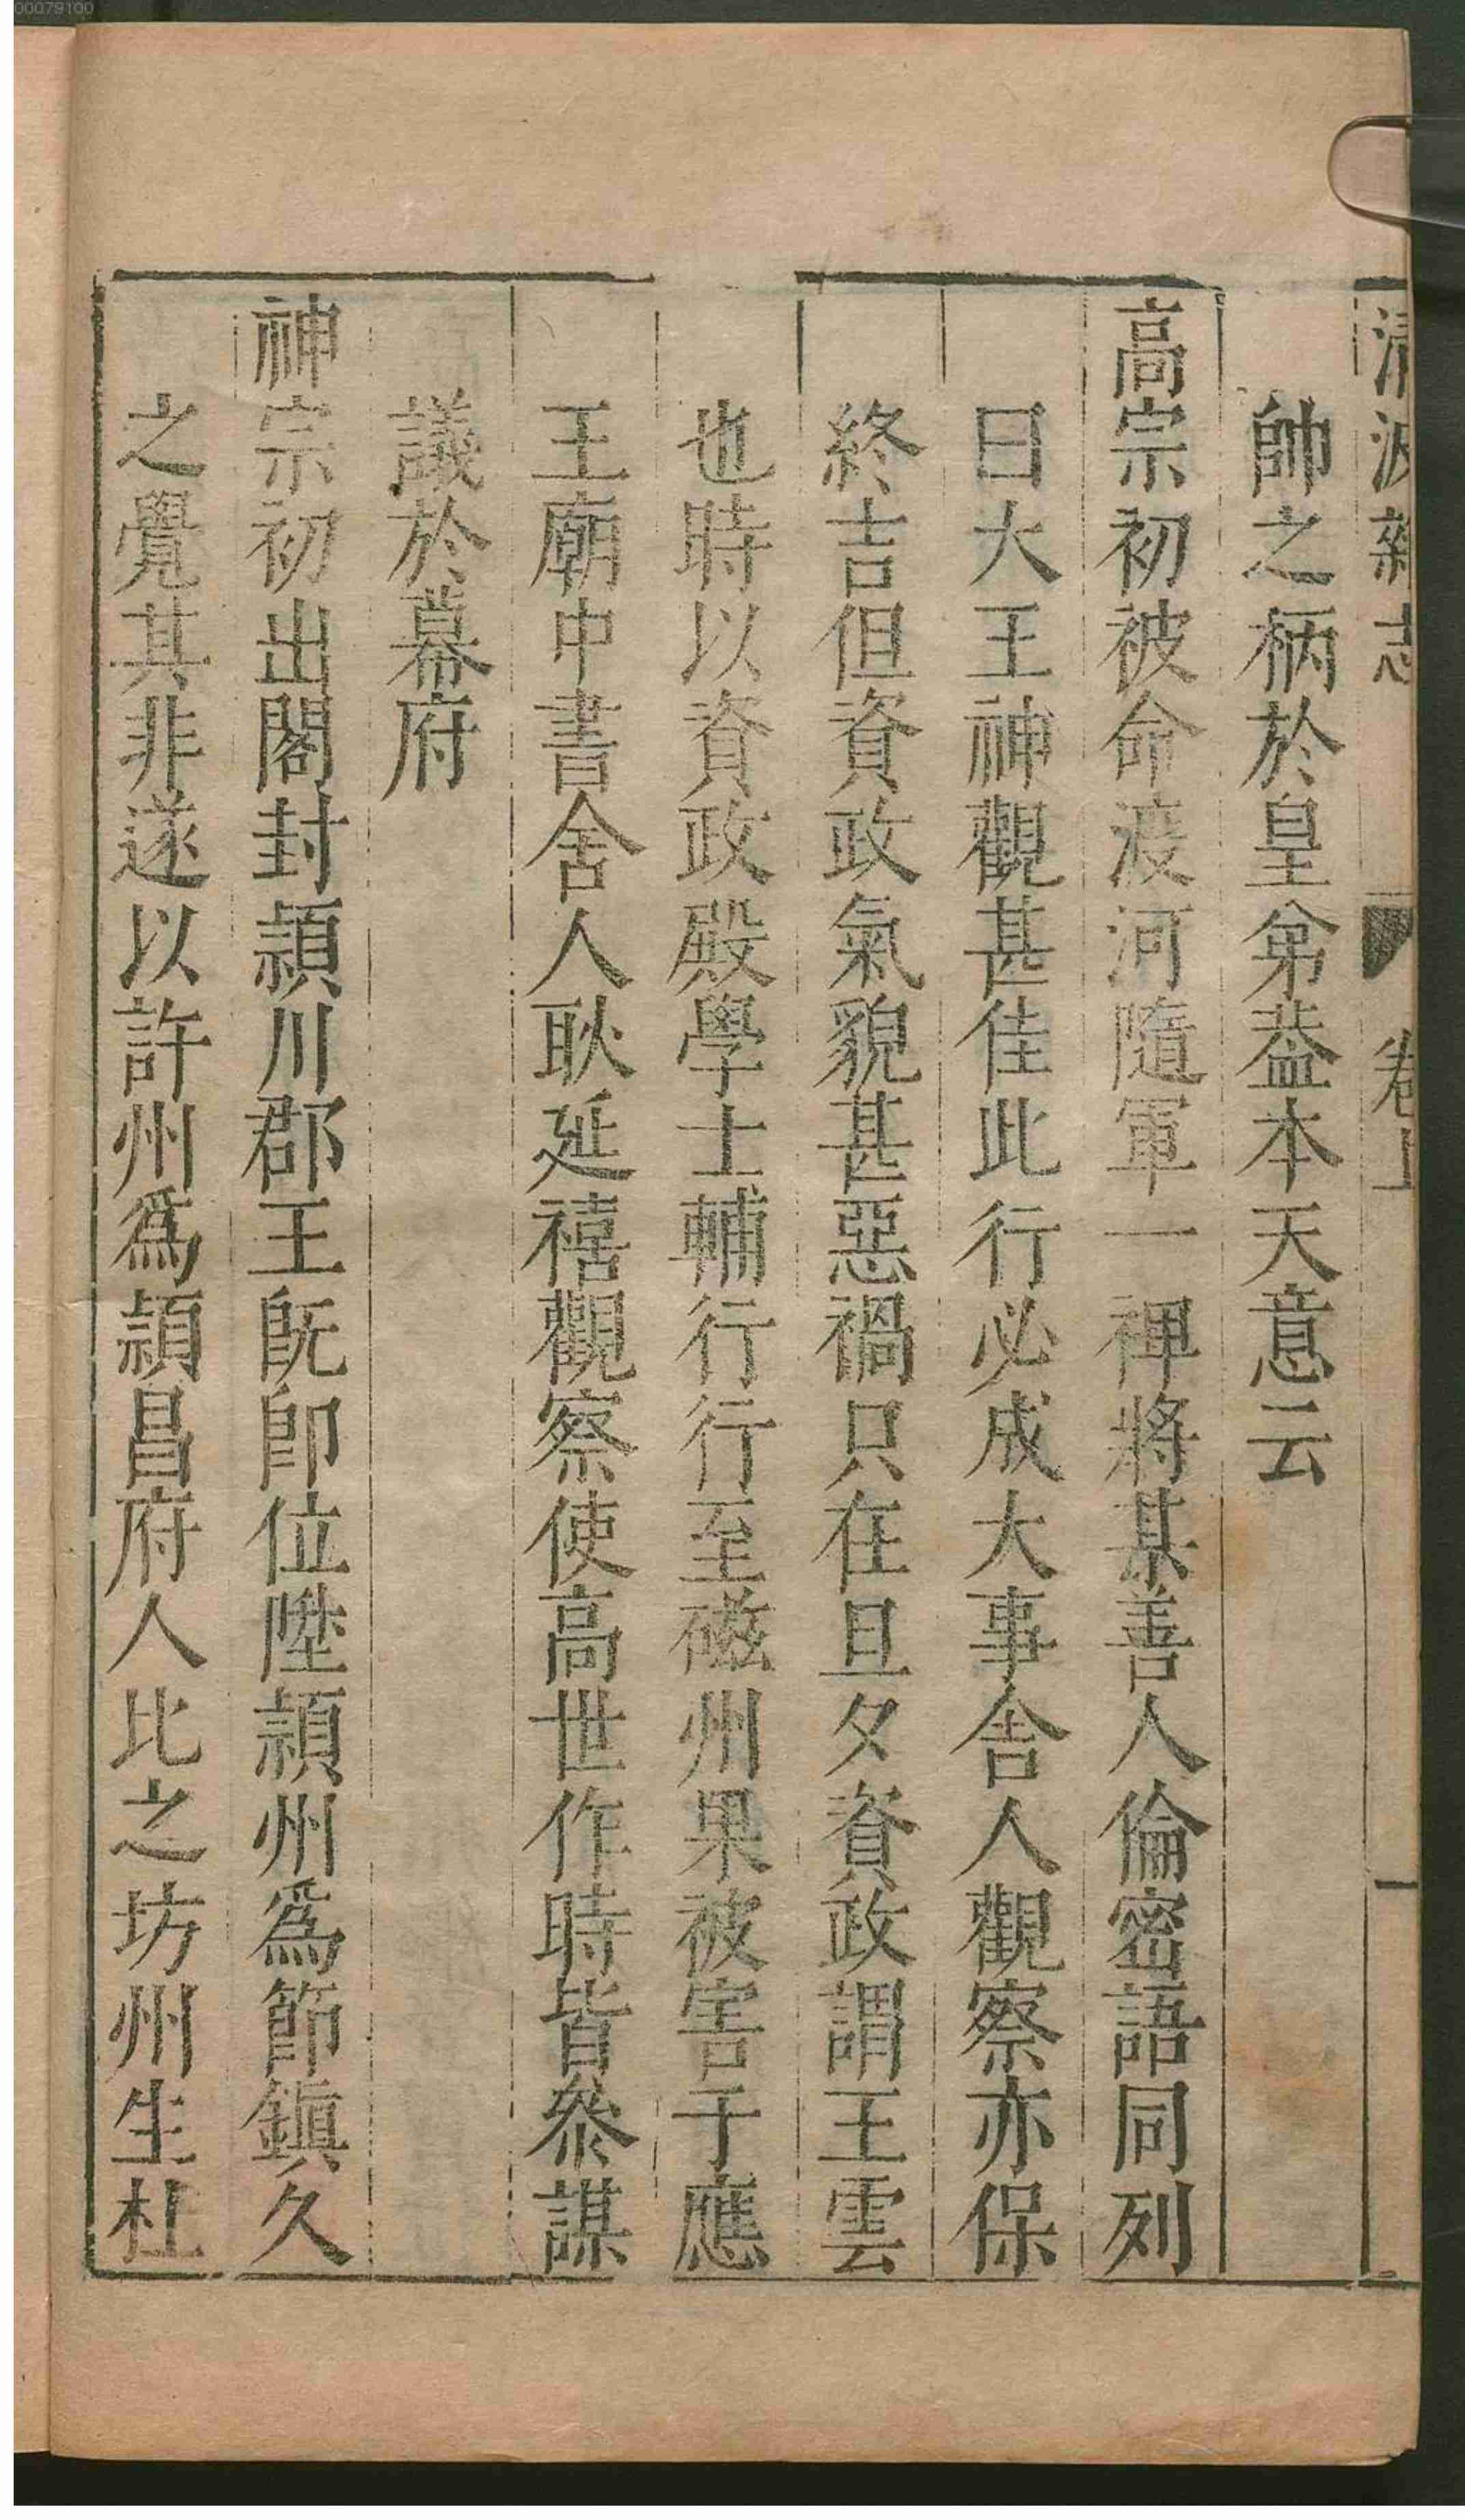 00079100
清波雜志 卷上 一
帥之柄於皇弟葢本天意云
高宗初被命渡河隨軍一禆將某善人倫密語同列
曰大王神觀甚佳此行必成大事舍人觀察亦保
終吉但資政氣貌甚惡禍只在旦夕資政謂王雲
也時以資政殿學士輔行行至磁州果被害于應
王廟中書舍人耿延禧觀察使高世作時皆叅謀
議於幕府
神宗初出閤封頴川郡王旣卽位陞頴州爲節鎮久
之覺其非遂以許州爲頴昌府人比之坊州生杜